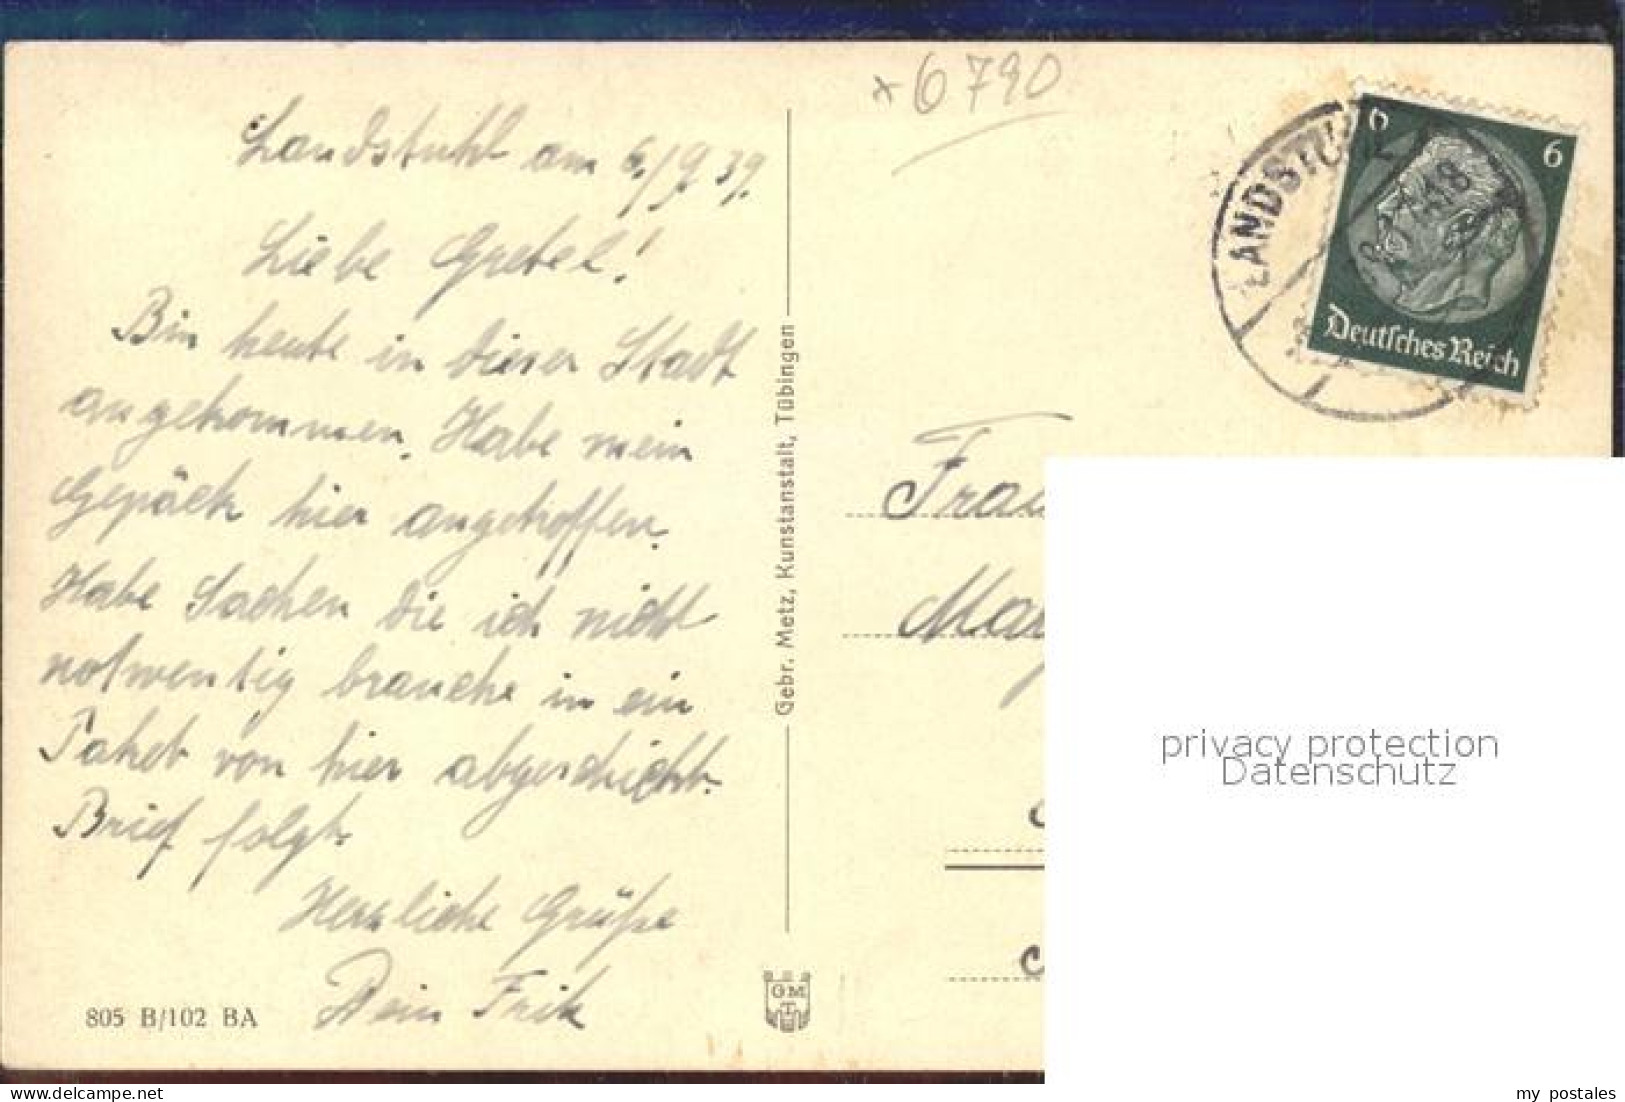 Landstuhl am 6./9. 39.
Liebe Gretel!
Bin heute in dieser Stadt
angekommen. Habe mein
Gepäck hier angetroffen.
Habe Sachen die ich nicht
notwendig brauche in ein
Paket von hier abgeschickt.
Brief folgt.
Herzliche Grüße
Dein Fritz
805 B/102 BA
Gebr. Metz, Kunstanstalt, Tübingen
GMT
*6790
LANDSTUHL
6 6
Deutsches Reich
Frau
privacy protection
Datenschutz
delcampe.net
my postales